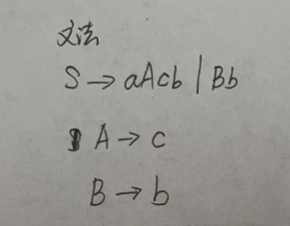 文法
S → aAcb | Bb
A → c
B → b